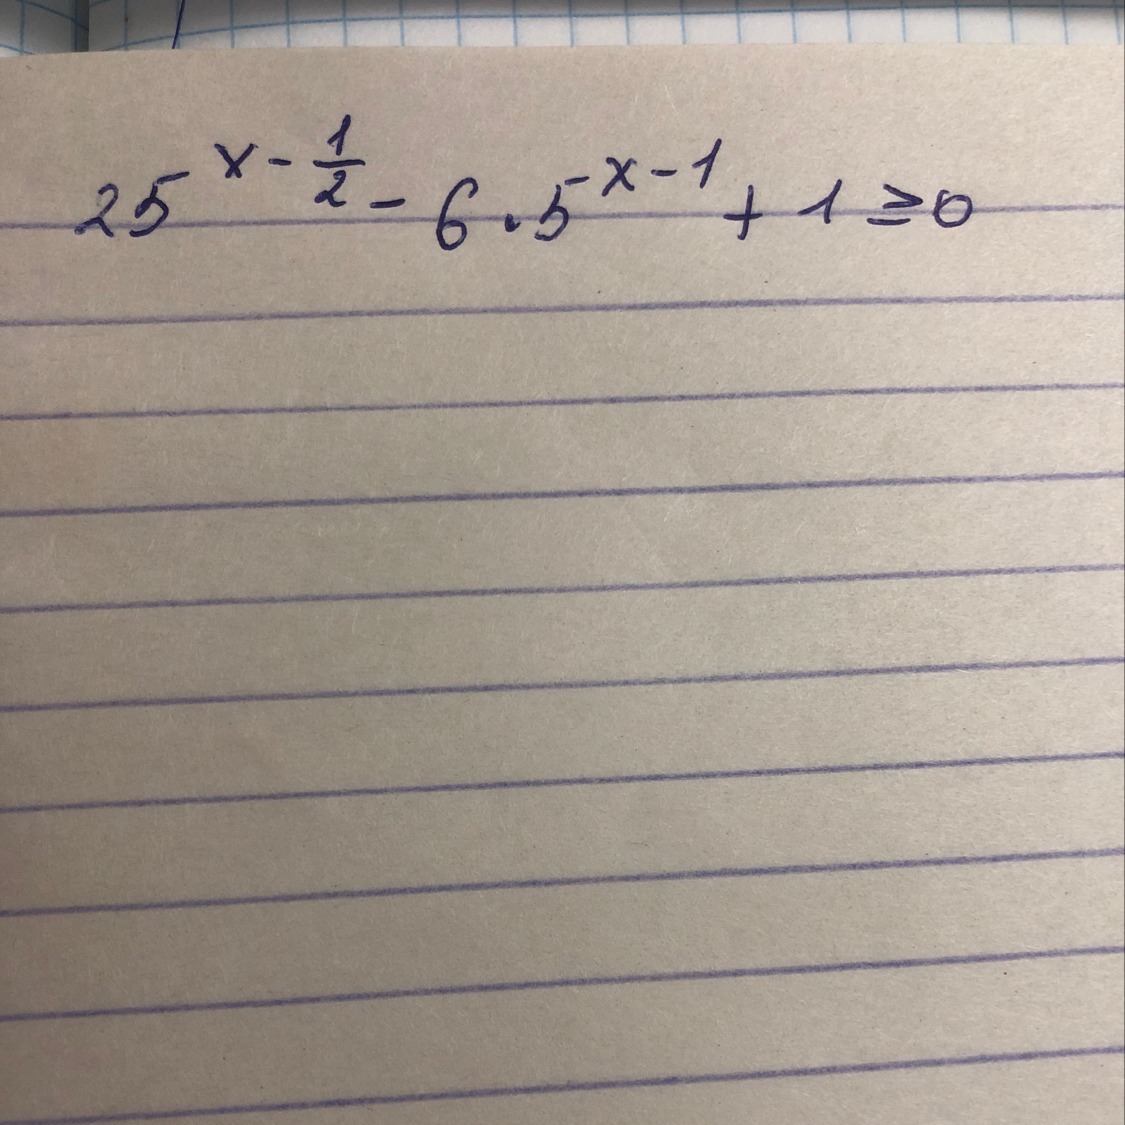 25^{x-\frac{1}{2}} - 6 \cdot 5^{x-1} + 1 ≥ 0